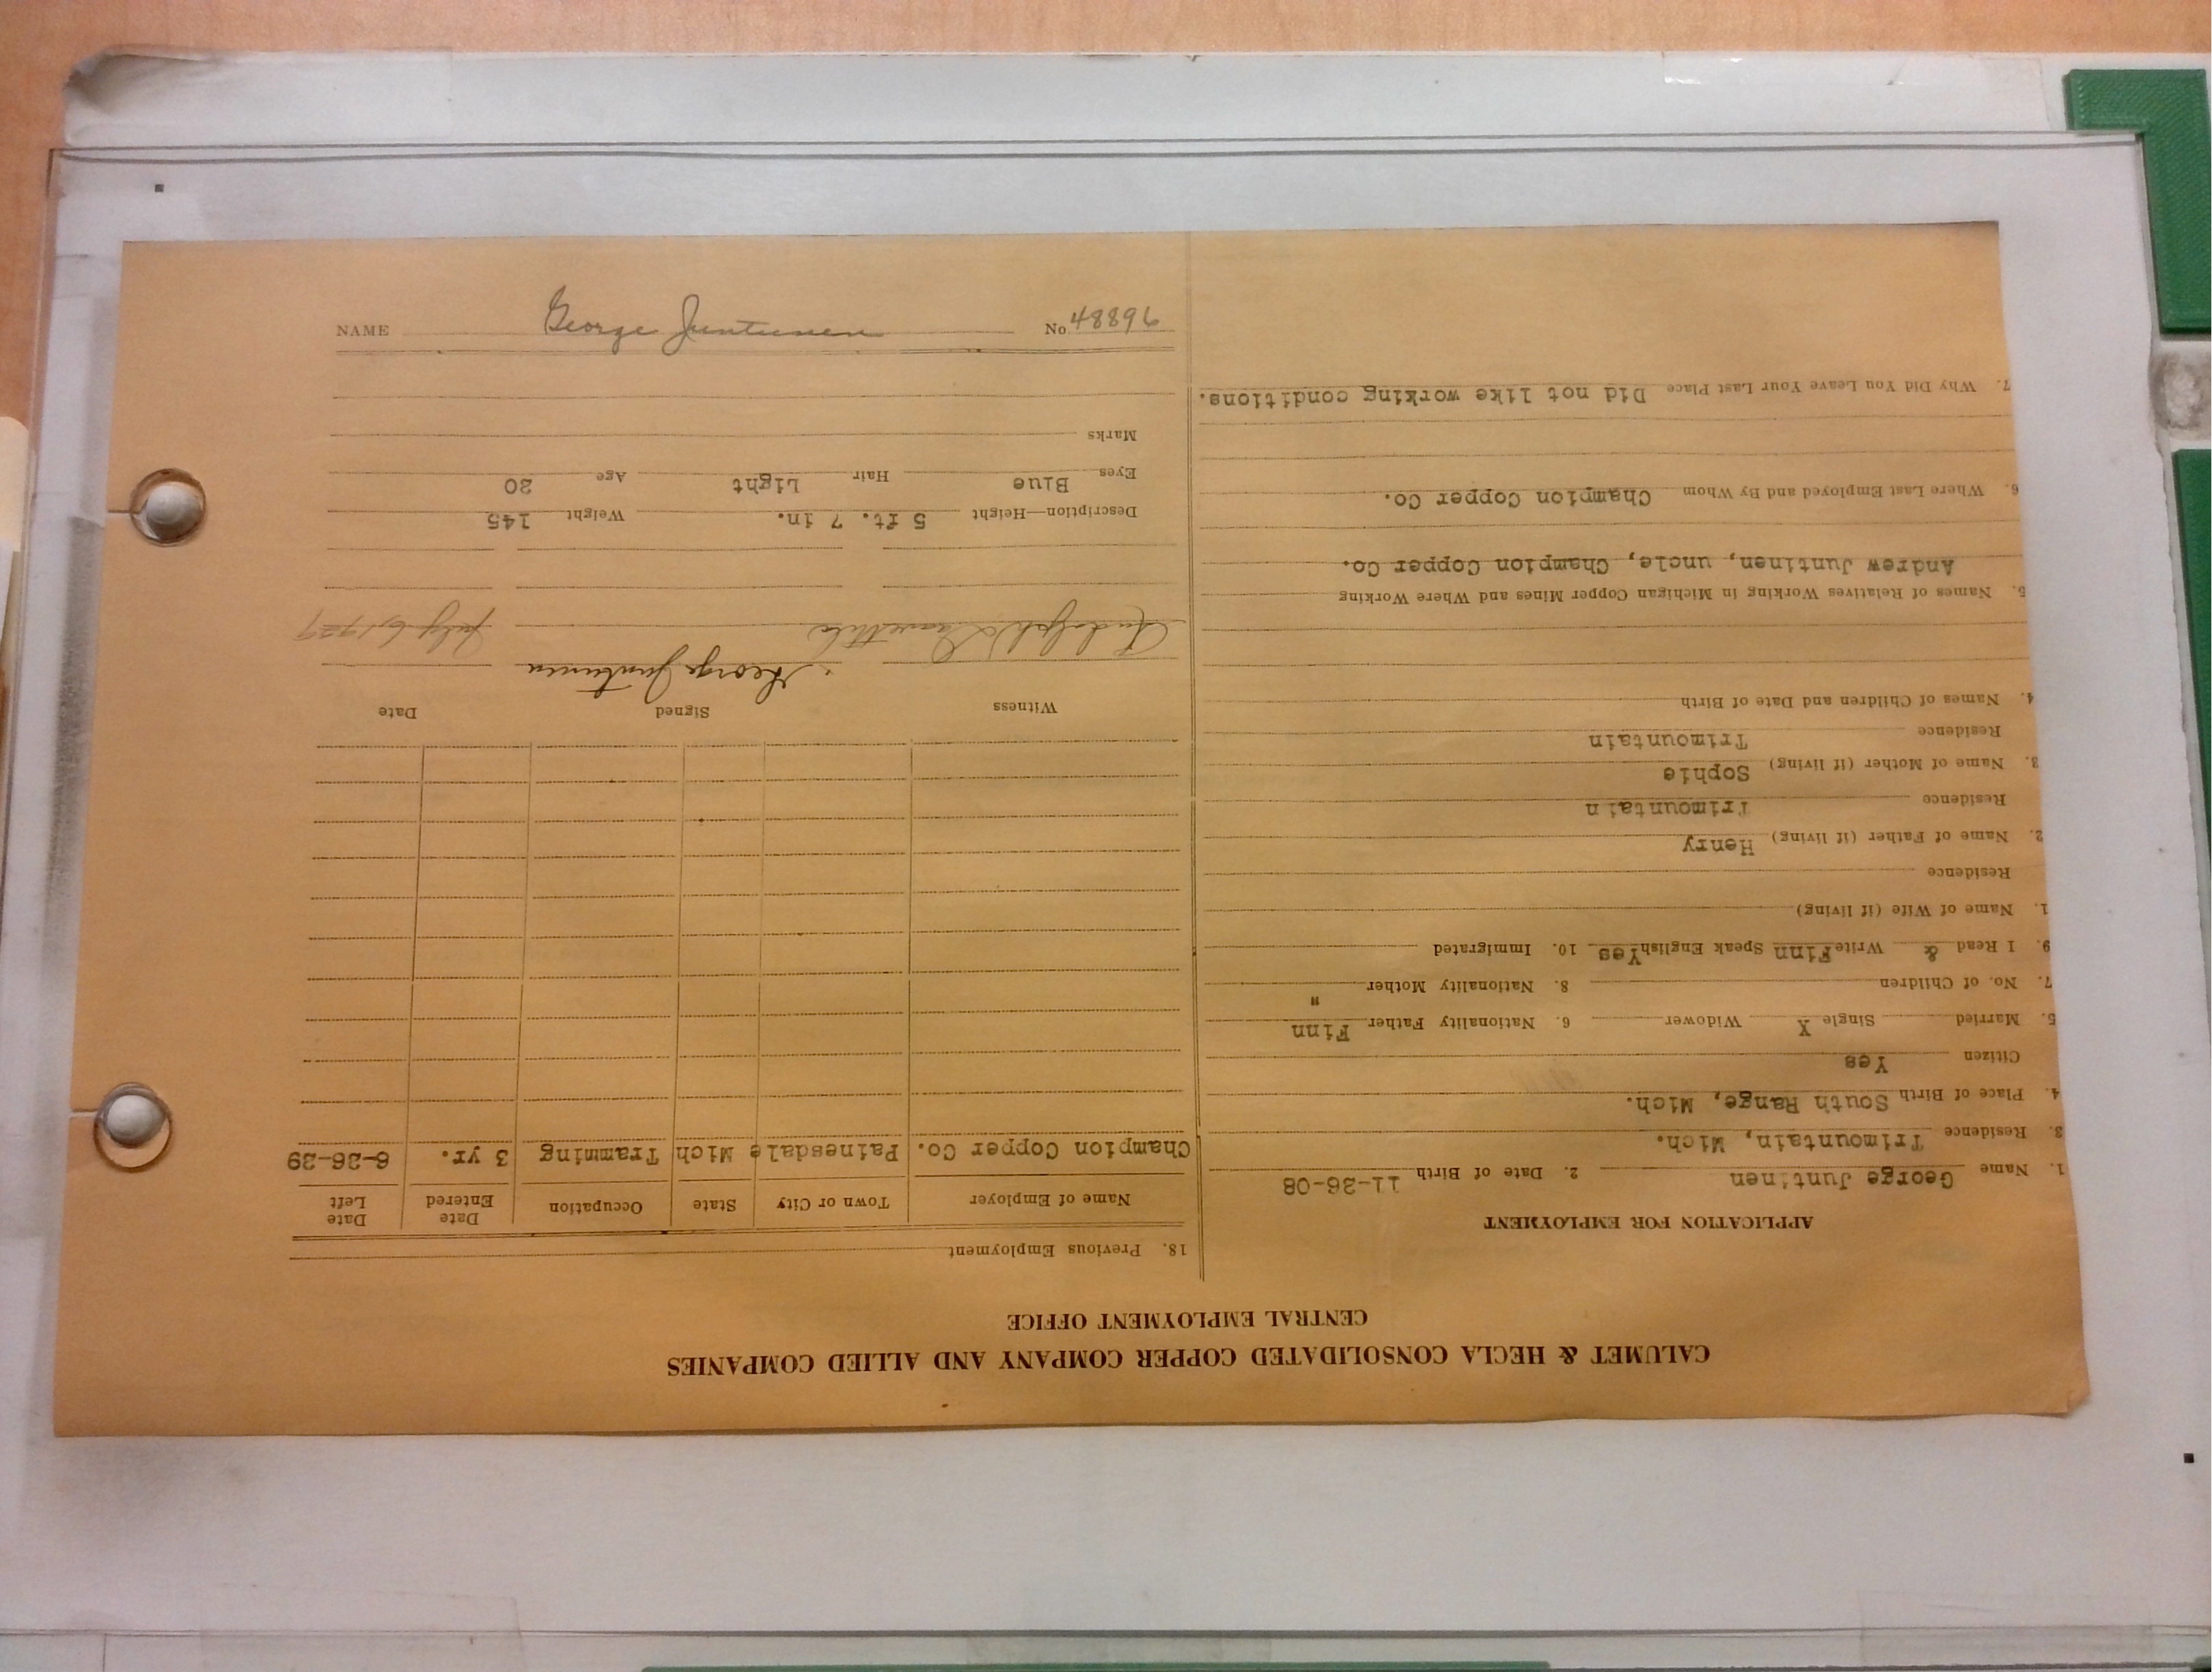 CALUMET & HECLA CONSOLIDATED COPPER COMPANY AND ALLIED COMPANIES
CENTRAL EMPLOYMENT OFFICE
APPLICATION FOR EMPLOYMENT
1. Name George Juntinen 2. Date of Birth 11-26-08
3. Residence Trimountain, Mich.
4. Place of Birth South Range, Mich.
Citizen Yes
5. Married Single X Widower 6. Nationality Father Finn
7. No. of Children 8. Nationality Mother "
9. I Read & Write Finn Speak English Yes 10. Immigrated
1. Name of Wife (if living)
Residence
2. Name of Father (if living) Henry
Residence Trimountain
3. Name of Mother (if living) Sophie
Residence Trimountain
4. Names of Children and Date of Birth
5. Names of Relatives Working in Michigan Copper Mines and Where Working
Andrew Juntinen, uncle, Champion Copper Co.
6. Where Last Employed and By Whom Champion Copper Co.
7. Why Did You Leave Your Last Place Did not like working conditions.
18. Previous Employment
Name of Employer Town or City State Occupation Date Entered Date Left
Champion Copper Co. Painesdale Mich Tramming 3 yr. 6-26-29
Witness Signed Date
George Juntunen
July 6, 1929
Description—Height 5 ft. 7 in. Weight 145
Eyes Blue Hair Light Age 20
Marks
NAME George Juntunen No 48896